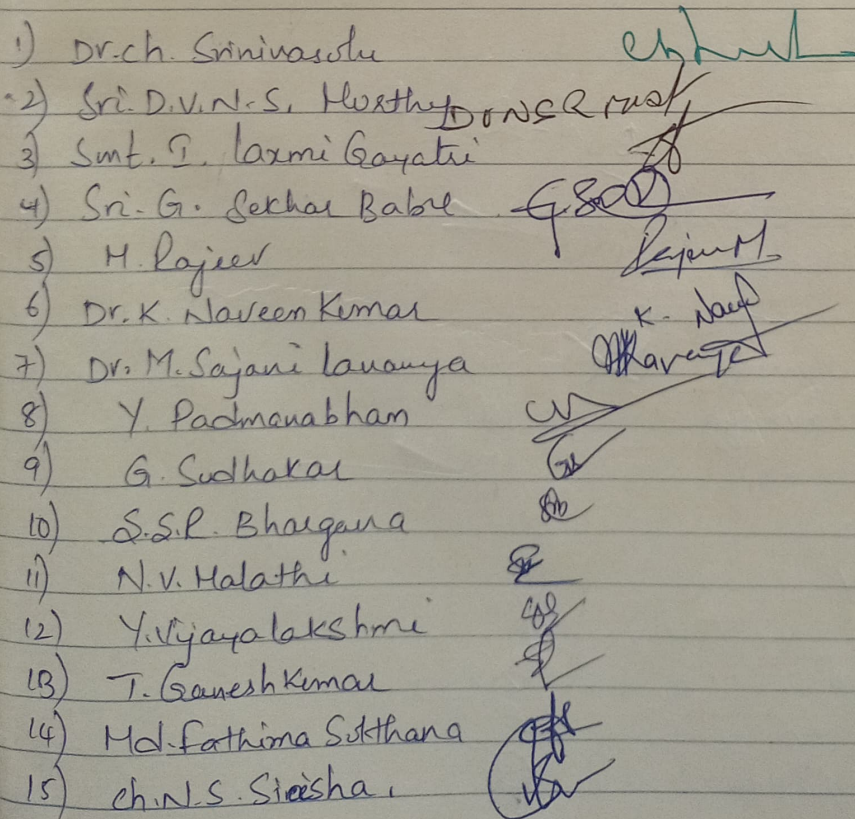 1) Dr.ch. Srinivasulu
2) Sri. D.V.N.S. Murthy
3) Smt. I. laxmi Gayatri
4) Sri. G. Sekhar Babu
5) M. Rajeev
6) Dr. K. Naveen Kumar K. Nav
7) Dr. M. Sajani lavanya
8) Y. Padmanabham
9) G. Sudhakar
10) S.S.R. Bhargava
11) N.V. Malathi
12) Y. Vijayalakshmi
13) T. Ganesh Kumar
14) Md. Fathima Sulthana
15) ch. N. S. Sireesha.